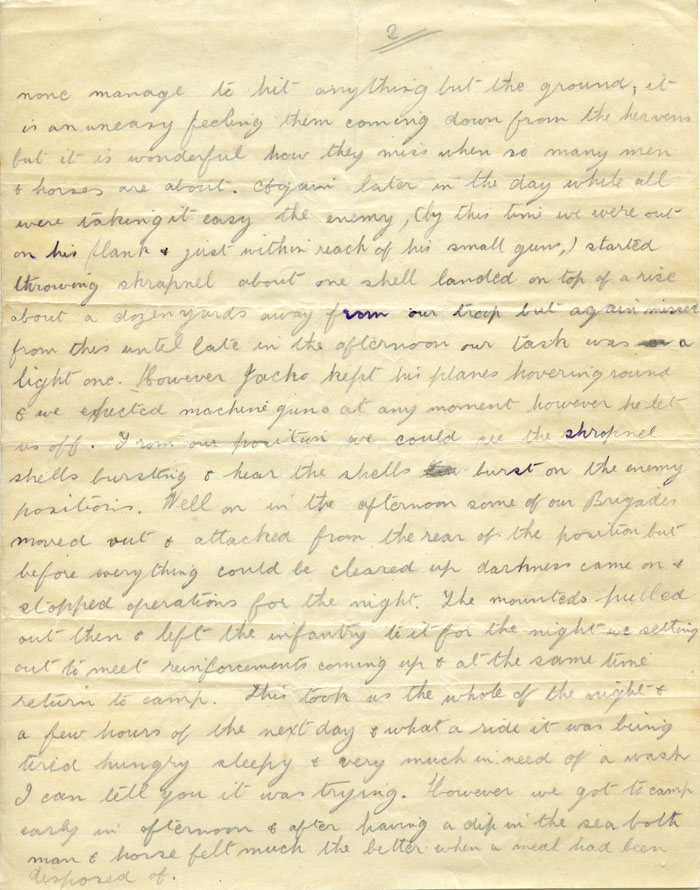 2
none manage to hit anything but the ground, it
is an uneasy feeling them coming down from the heavens
but it is wonderful how they miss when so many men
& horses are about. Again later in the day while all
were taking it easy the enemy, (by this time we were out
on his flank & just within reach of his small guns,) started
throwing shrapnel about one shell landed on top of a rise
about a dozen yards away from our troop but again missed
from this until late in the afternoon our task was a
light one. However Jacko kept his planes hovering round
& we expected machine guns at any moment however he let
us off. From our position we could see the shrapnel
shells bursting & hear the shells burst on the enemy
positions. Well on in the afternoon some of our Brigades
moved out & attacked from the rear of the position but
before everything could be cleared up darkness came on &
stopped operations for the night. The mounteds pulled
out then & left the infantry to it for the night we setting
out to meet reinforcements coming up & at the same time
return to camp. This took us the whole of the night &
a few hours of the next day & what a ride it was being
tired hungry sleepy & very much in need of a wash
I can tell you it was trying. However we got to camp
early in afternoon & after having a dip in the sea both
man & horse felt much the better when a meal had been
disposed of.